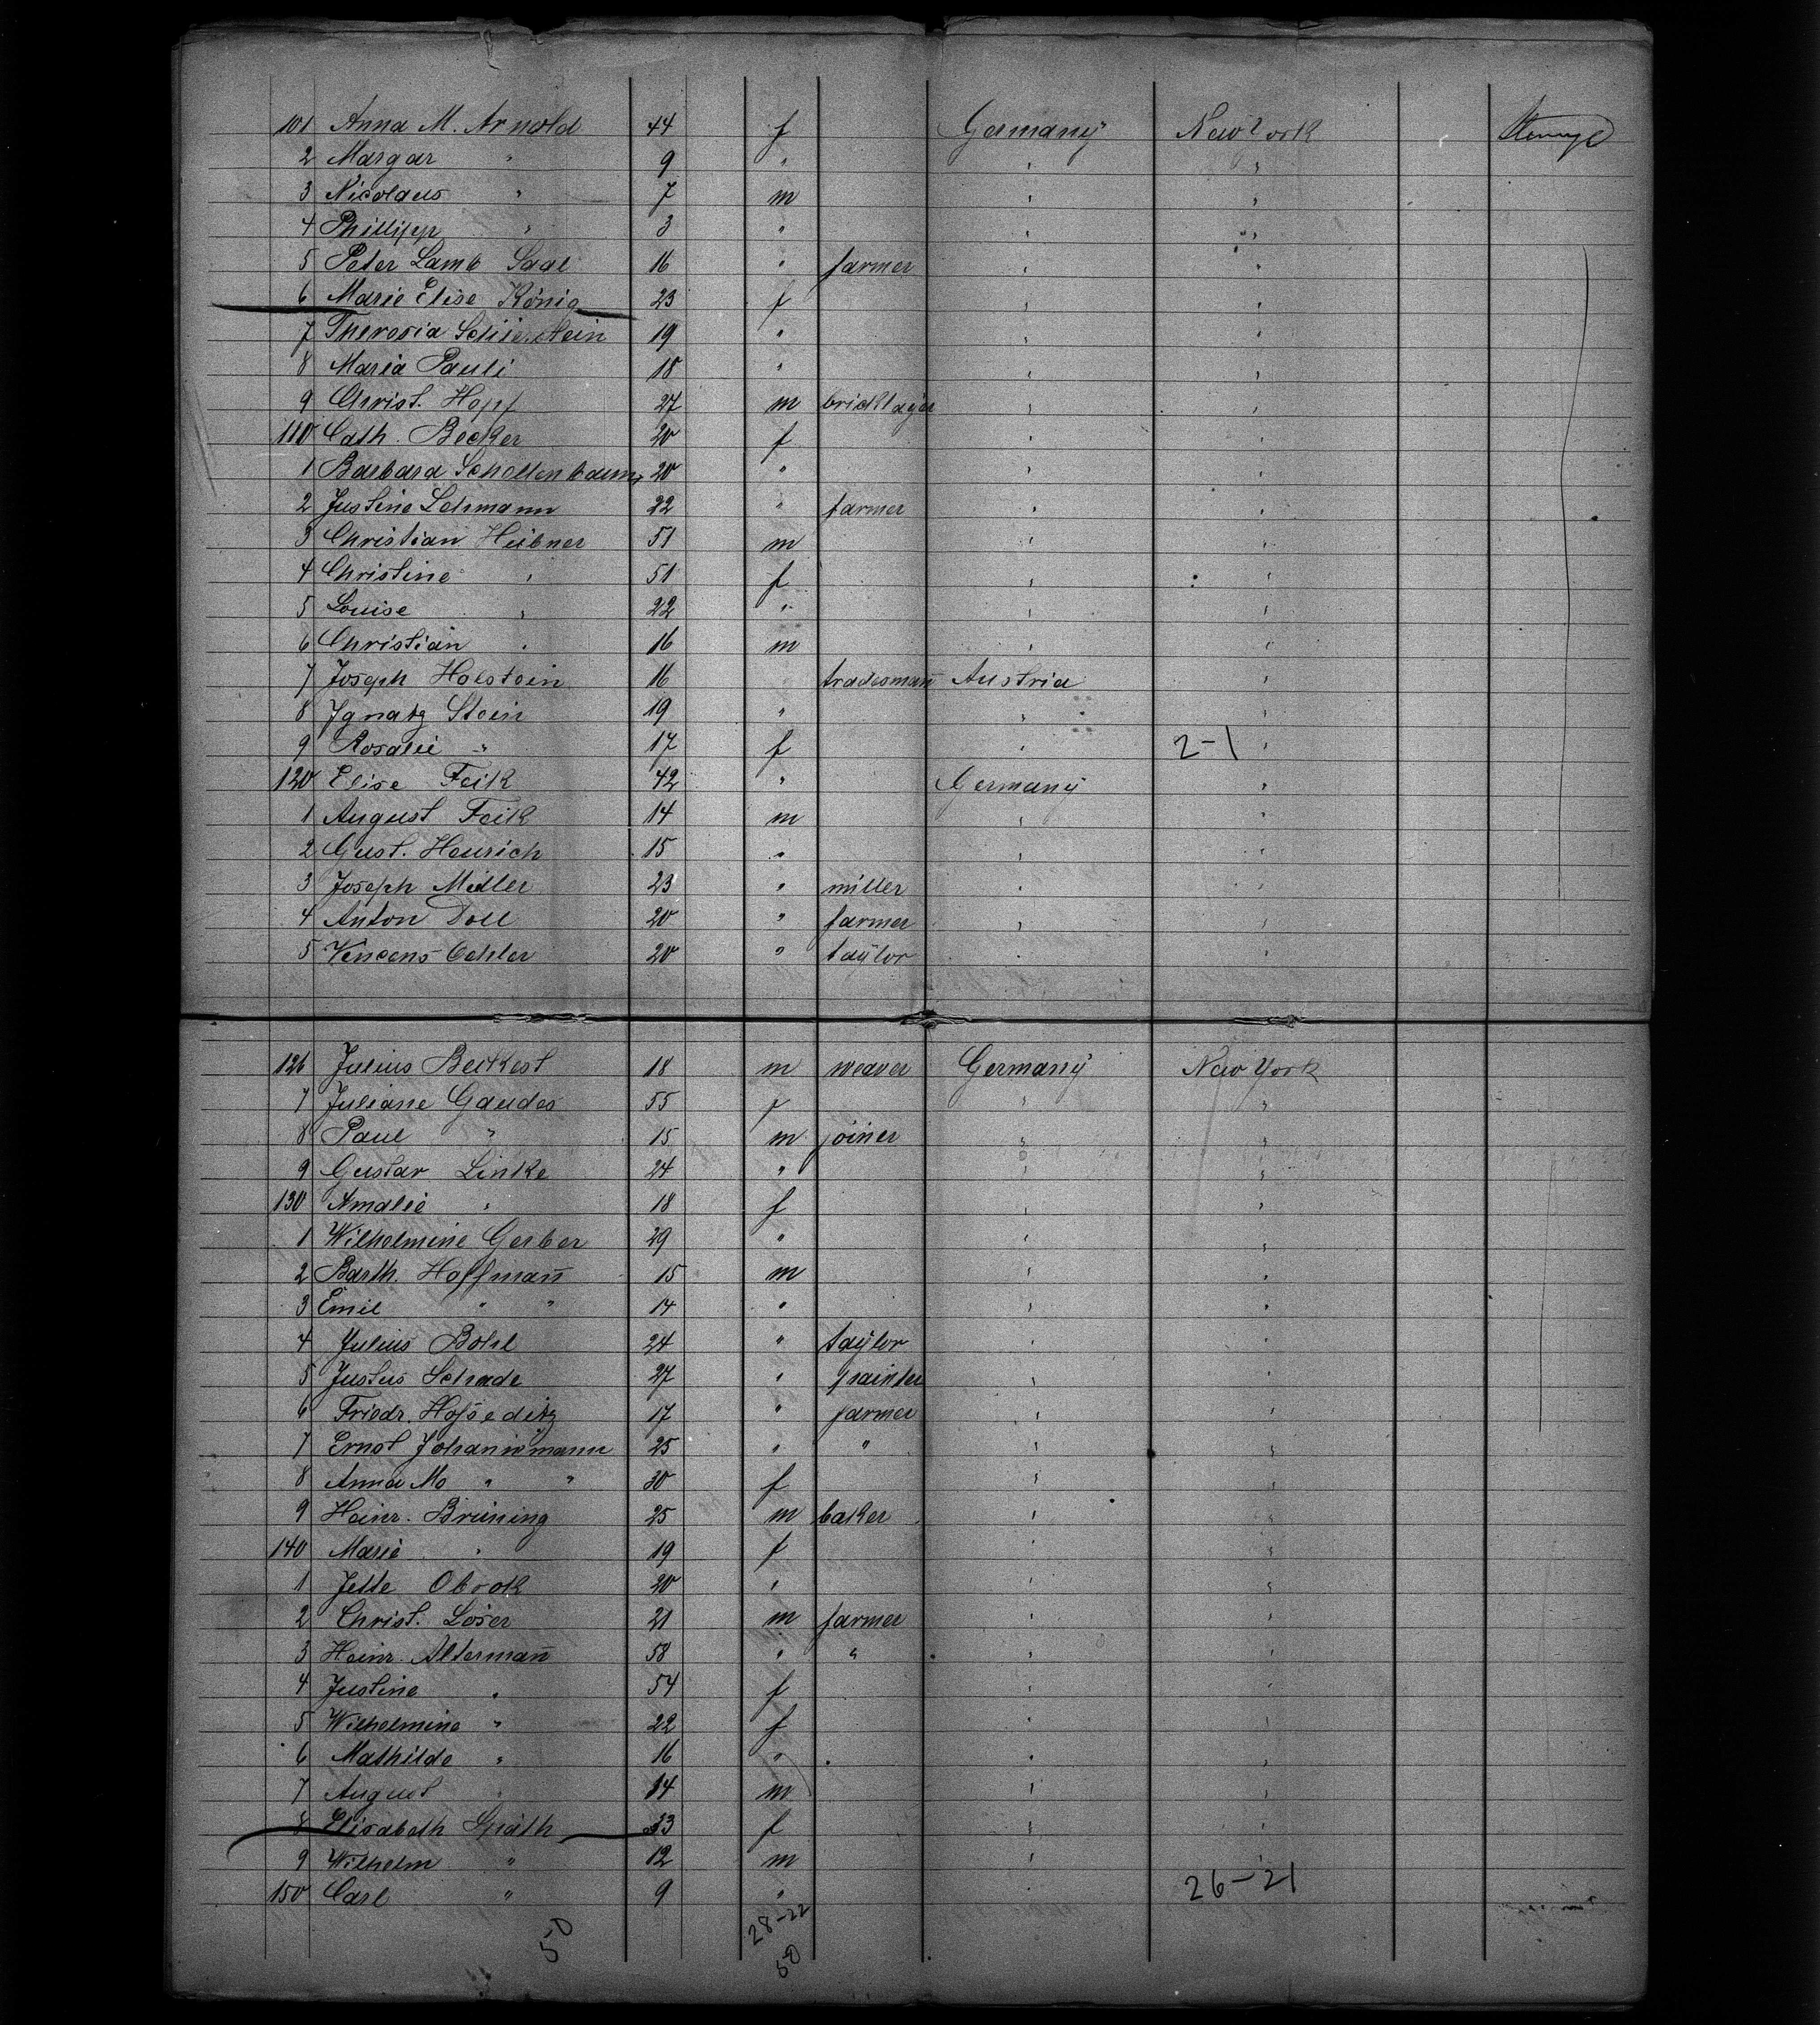 101 Anna M. Arnold 44 f Germany New York
2 Margar " 9 " " "
3 Nicolaus " 7 m " "
4 Phillipp " 3 " " "
5 Peter Lamb Saal 16 " farmer " "
6 Marie Elise König 23 f " "
7 Theresia 19 " " "
8 Maria Pauli 18 " " "
9 Christ. Hopf 27 m bricklayer " "
110 Cath. Becker 20 f " "
1 Barbara 20 " " "
2 Justine Lehmann 22 " farmer " "
3 Christian Hübner 51 m " "
4 Christine " 51 f " "
5 Louise " 22 " " "
6 Christian " 16 m " "
7 Joseph Holstein 16 " tradesman Austria "
8 Ignatz Stein 19 " " "
9 Rosalie " 17 f " 2-1 "
120 Elise Feik 42 " Germany "
1 August Feik 14 m " "
2 Gust. Heurich 15 " " "
3 Joseph Müller 23 " miller " "
4 Anton Doll 20 " farmer " "
5 Vencens Oehler 20 " taylor " "
126 Julius 18 m weaver Germany New York
7 Juliane Gaudes 55 f " "
8 Paul " 15 m joiner " "
9 Gustav Linke 24 " " "
130 Amalie " 18 f " "
1 Wilhelmine Gerber 29 " " "
2 Barth. Hoffmañ 15 m " "
3 Emil " " 14 " " "
4 Julius Bohl 24 " taylor " "
5 Justus Schade 27 " painter " "
6 Friedr. 17 " farmer " "
7 Ernst 25 " " " "
8 Anna Mo " " 30 f " "
9 Heinr. Brüning 25 m baker " "
140 Marie " 19 f " "
1 Jette Obrok 20 " " "
2 Christ. Löser 21 m farmer " "
3 Heinr. Altermañ 58 " " " "
4 Justine " 54 f " "
5 Wilhelmine " 22 f " "
6 Mathilde " 16 " " "
7 August " 14 m " "
8 Elisabeth Späth 33 f " "
9 Wilhelm " 12 m " "
150 Carl " 9 " " 26-21
50 28-22
50